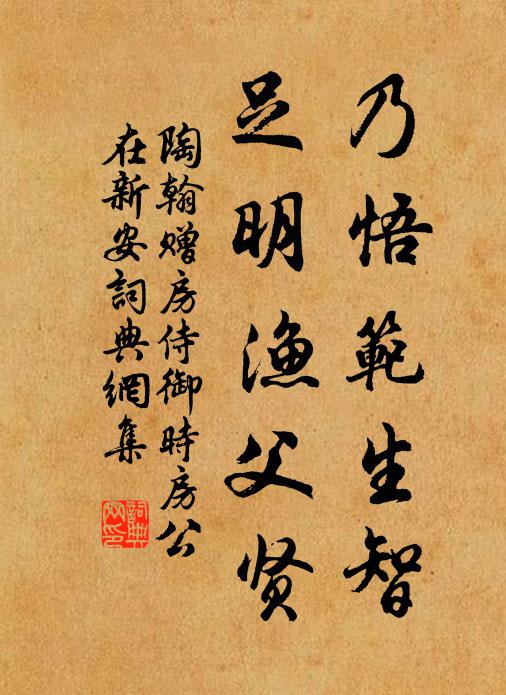 乃悟範生智
足明漁父贤
陶翰赠房侍御時房公
在新安詞典網集
詞典
网印